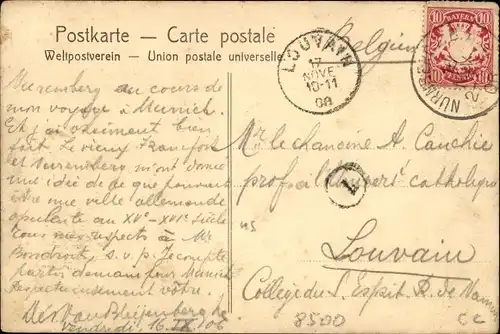 Postkarte — Carte postale
Weltpostverein — Union postale universelle
Belgien
LOUVAIN
17
NOVE
10-11
06
BAYERN
10 10
PFENNIG
NURNB
Nuremberg au cours de
mon voyage à Munich.
Et j'ai vraiment bien
fait. Le vieux Francfort
et Nuremberg m'ont donné
une idée de ce que pouvait
être une ville allemande
opulente au XVe-XVIe siècle
mes respects à Mr
Bondroit, s.v.p. Je compte
partir demain pour Munich
Respectueusement vôtre.
vendredi 16 06
Mr. le chanoine A. Cauchie
prof. à l'Univers. catholique
Louvain
Collège du S. Esprit, R. de Namur
1
45
8500